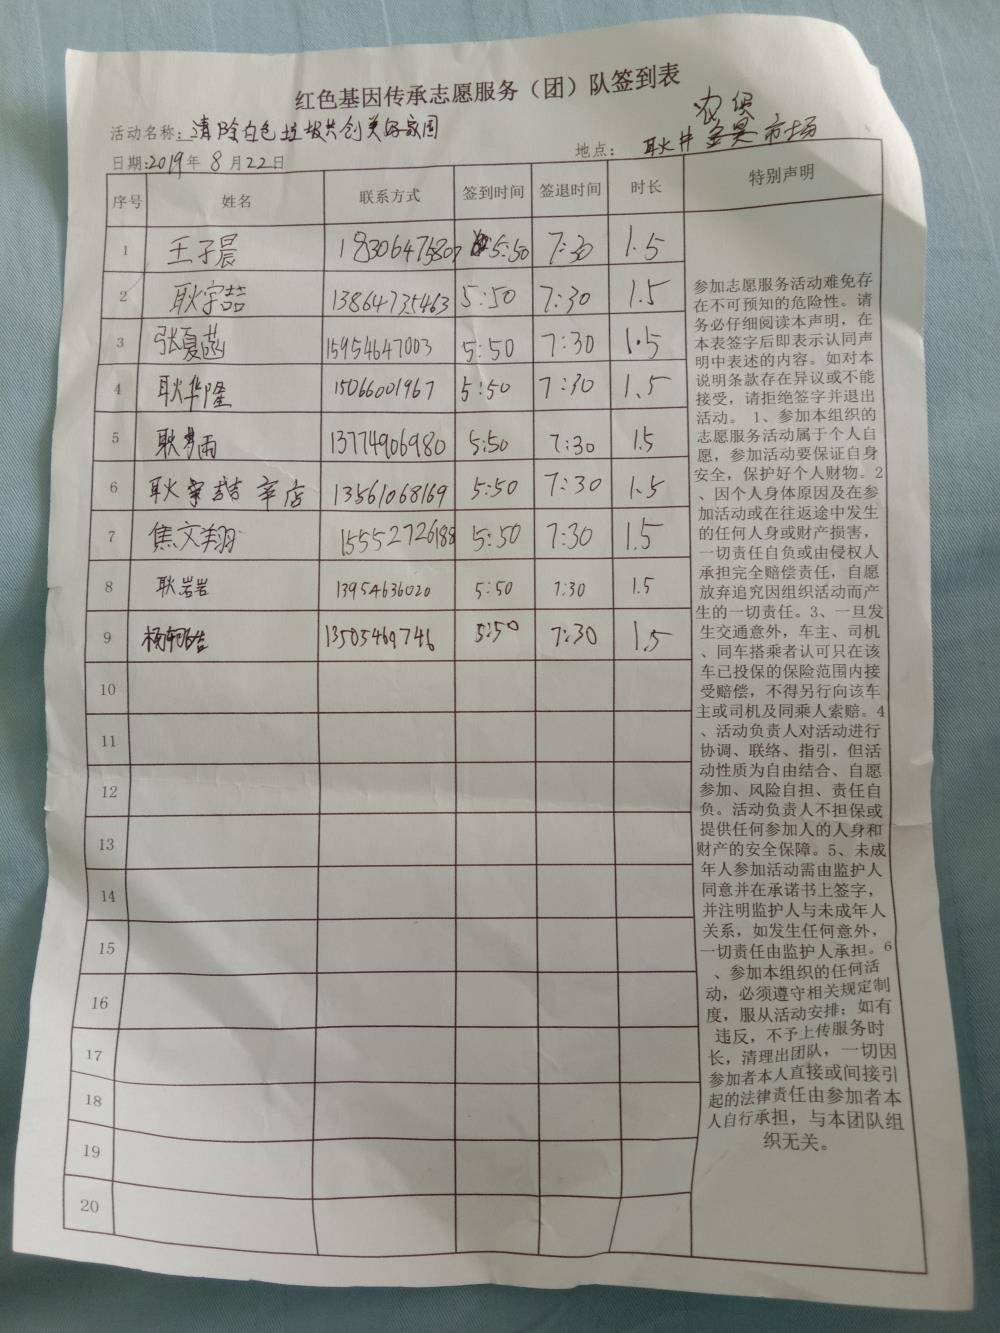 红色基因传承志愿服务（团）队签到表
活动名称：清除白色垃圾共创美好家园
农贸
地点： 耿井 市场
日期:2019年 8月22日
序号 姓名 联系方式 签到时间 签退时间 时长 特别声明
1 王子晨 18306475807 5:50 7:30 1.5
2 耿宇喆 13864735463 5:50 7:30 1.5
3 张夏菡 15954647003 5:50 7:30 1.5
4 耿华隆 15066001967 5:50 7:30 1.5
5 耿梦雨 13774906980 5:50 7:30 1.5
6 耿宇喆 辛店 13561068169 5:50 7:30 1.5
7 焦文翔 15552726188 5:50 7:30 1.5
8 耿岩岩 13954636020 5:50 7:30 1.5
9 13505469746 5:50 7:30 1.5
10
11
12
13
14
15
16
17
18
19
20
参加志愿服务活动难免存
在不可预知的危险性。请
务必仔细阅读本声明，在
本表签字后即表示认同声
明中表述的内容。如对本
说明条款存在异议或不能
接受，请拒绝签字并退出
活动。 1、参加本组织的
志愿服务活动属于个人自
愿，参加活动要保证自身
安全，保护好个人财物。2
、因个人身体原因及在参
加活动或在往返途中发生
的任何人身或财产损害，
一切责任自负或由侵权人
承担完全赔偿责任，自愿
放弃追究因组织活动而产
生的一切责任。3、一旦发
生交通意外，车主、司机
、同车搭乘者认可只在该
车已投保的保险范围内接
受赔偿，不得另行向该车
主或司机及同乘人索赔。4
、活动负责人对活动进行
协调、联络、指引，但活
动性质为自由结合、自愿
参加、风险自担、责任自
负。活动负责人不担保或
提供任何参加人的人身和
财产的安全保障。5、未成
年人参加活动需由监护人
同意并在承诺书上签字，
并注明监护人与未成年人
关系，如发生任何意外，
一切责任由监护人承担。6
、参加本组织的任何活
动，必须遵守相关规定制
度，服从活动安排；如有
违反，不予上传服务时
长，清理出团队，一切因
参加者本人直接或间接引
起的法律责任由参加者本
人自行承担，与本团队组
织无关。